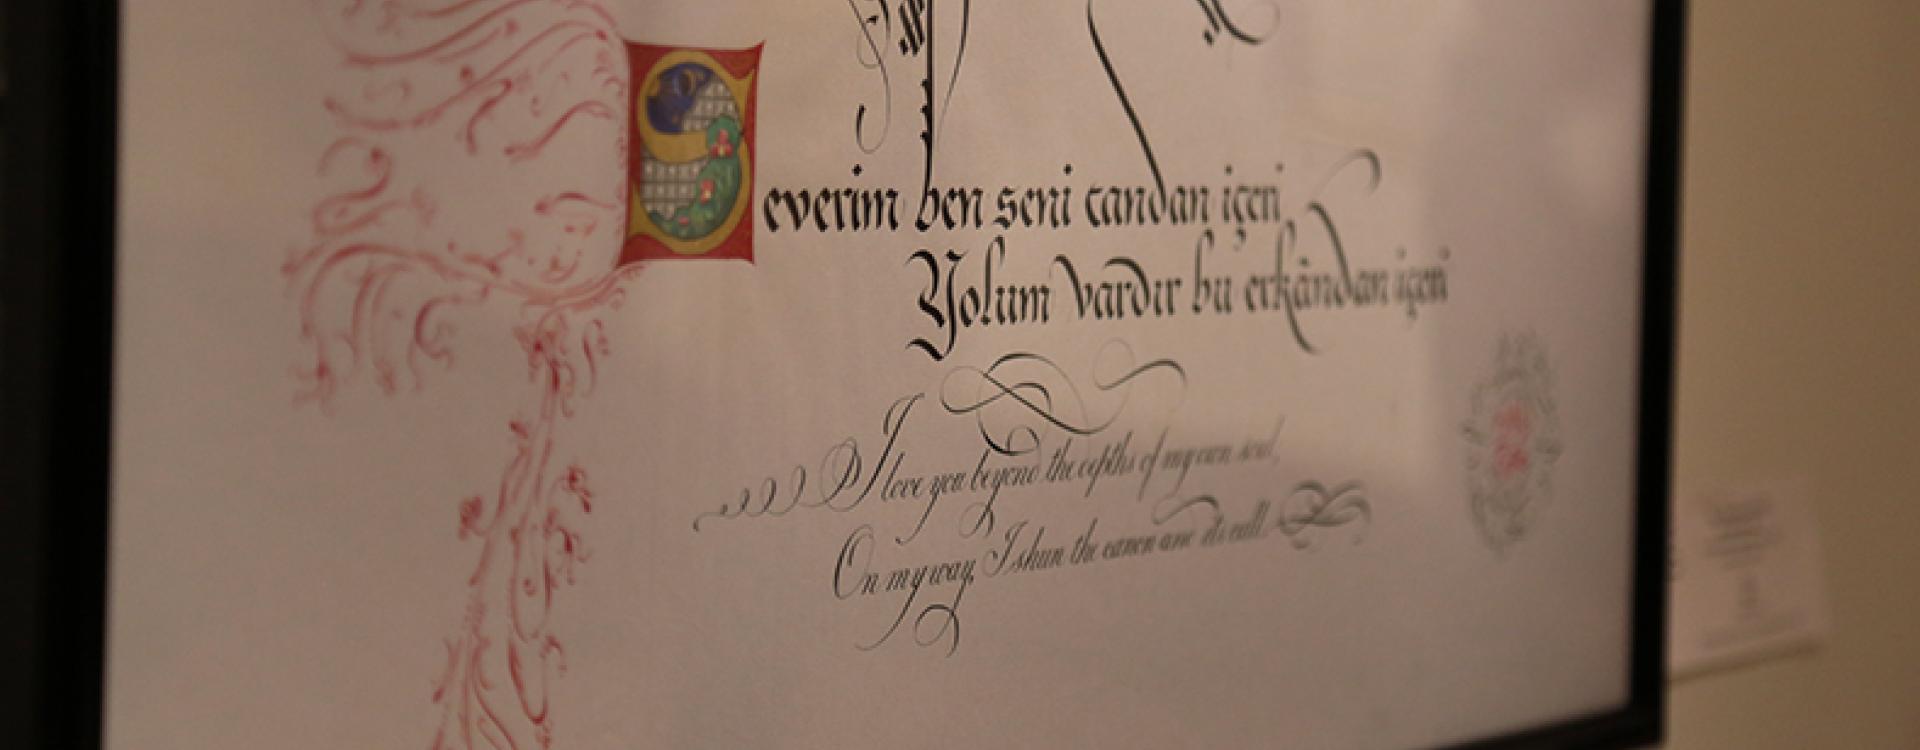 Severim ben seni candan içeri
Yolum vardır bu erkândan içeri
I love you beyond the depths of my own soul,
On my way, I shun the canon and its call.